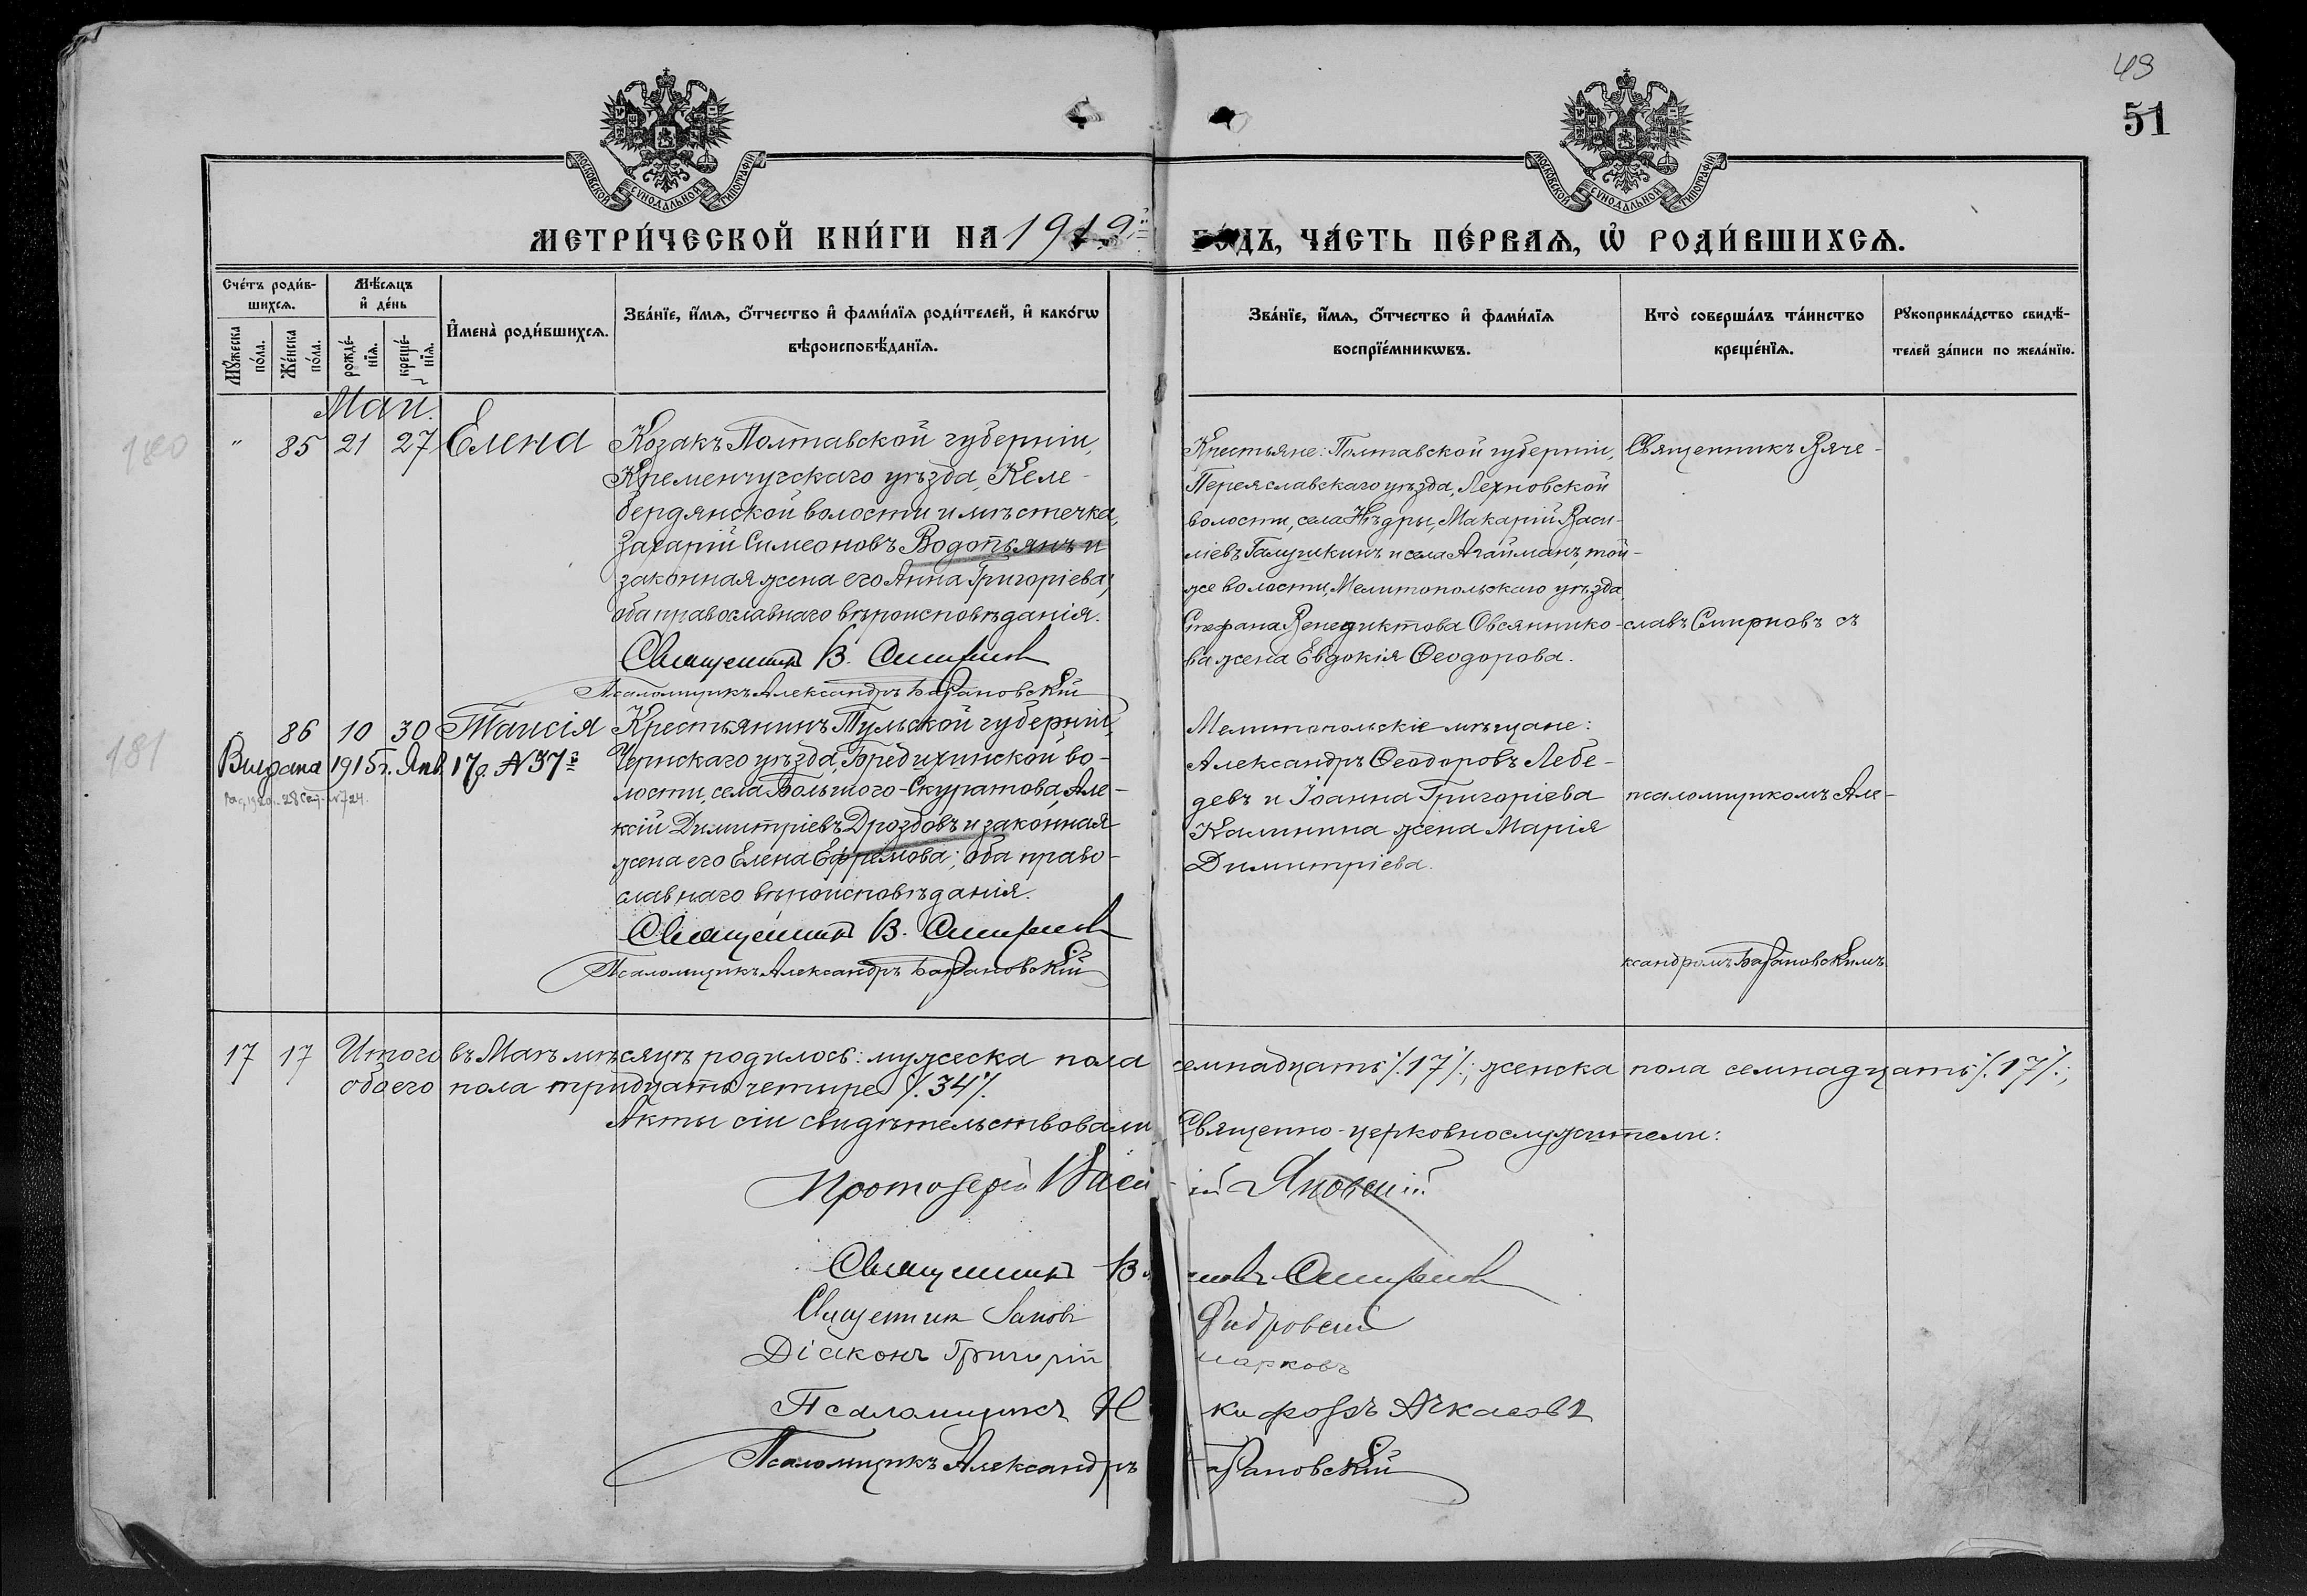 49
51
МОСКОВСКОЙ СѴНОДАЛЬНОЙ ТИПОГРАФІИ
МОСКОВСКОЙ СѴНОДАЛЬНОЙ ТИПОГРАФІИ
МЕТРИ́ЧЕСКОЙ КНИ́ГИ НА 191
ГО́ДЪ, ЧА́СТЬ ПЕ́РВАѦ, Ѡ҆ РОДИ́ВШИХСѦ.
Сче́тъ роди́в-
шихсѧ.
Мꙋ́жеска по́ла.
Же́нска по́ла.
Мѣ́сѧцъ
и҆ де́нь
рожде́-нїѧ.
креще́-нїѧ.
И҆мена̀ роди́вшихсѧ.
Зва́нїе, и҆́мѧ, ѻ҆́тчество и҆ фами́лїѧ роди́телей, и҆ како́гѡ
вѣроисповѣ́данїѧ.
Зва́нїе, и҆́мѧ, ѻ҆́тчество и҆ фами́лїѧ
воспрїе́мникѡвъ.
Кто̀ соверша́лъ та́инство
креще́нїѧ.
Рꙋкоприкла́дство свидѣ́-
телей за́писи по жела́нїю.
Маи.
180
" 85 21 27 Елена
Козакъ Полтавской губерніи,
Кременчугскаго уѣзда, Келе-
бердянской волости и мѣстечка,
Захарій Симеоновъ Водопьянъ и
законная жена его Анна Григоріева,
оба православнаго вѣроисповѣданія.
Священникъ В. Смирнов
Псаломщикъ Александръ Барановскій
Крестьяне: Полтавской губерніи,
Переяславскаго уѣзда, Лехновской
волости, села Нѣдры, Макарій Васи-
ліевъ Галушкинъ и села Агайманъ, той-
же волости, Мелитопольскаго уѣзда,
Стефана Венедиктова Овсяннико-
ва жена Евдокія Ѳеодорова.
Священникъ Вяче-
славъ Смирновъ съ
181
86 10 30 Таисія
Выдана 1915 г. Янв. 17 д. № 37
Крестьянинъ Тульской губерніи,
Чернскаго уѣзда, Бредихинской во-
лости, села Большого-Скуратова, Але-
ксій Димитріевъ Дроздовъ и законная
жена его Елена Ефремова; оба право-
славнаго вѣроисповѣданія.
Священникъ В. Смирнов
Псаломщикъ Александръ Барановскій
Мелитопольскіе мѣщане:
Александръ Ѳеодоровъ Лебе-
девъ и Іоанна Григоріева
Калинина жена Марія
Димитріева.
псаломщикомъ Але-
ксандромъ Барановскимъ
17 17 Итого въ Маѣ мѣсяцѣ родилось: мужеска пола семнадцать /.17/.; женска пола семнадцать /.17/.;
обоего пола тридцать четыре /.34/.
Акты сіи свидѣтельствовали Священно-церковнослужители:
Протоіерей Василій Яновскій
Священникъ В славъ Смирнов
Священник Іаковъ
Діаконъ Григорій Марковъ
Псаломщикъ Никифоръ Ачкасовъ
Псаломщикъ Александръ Барановскій